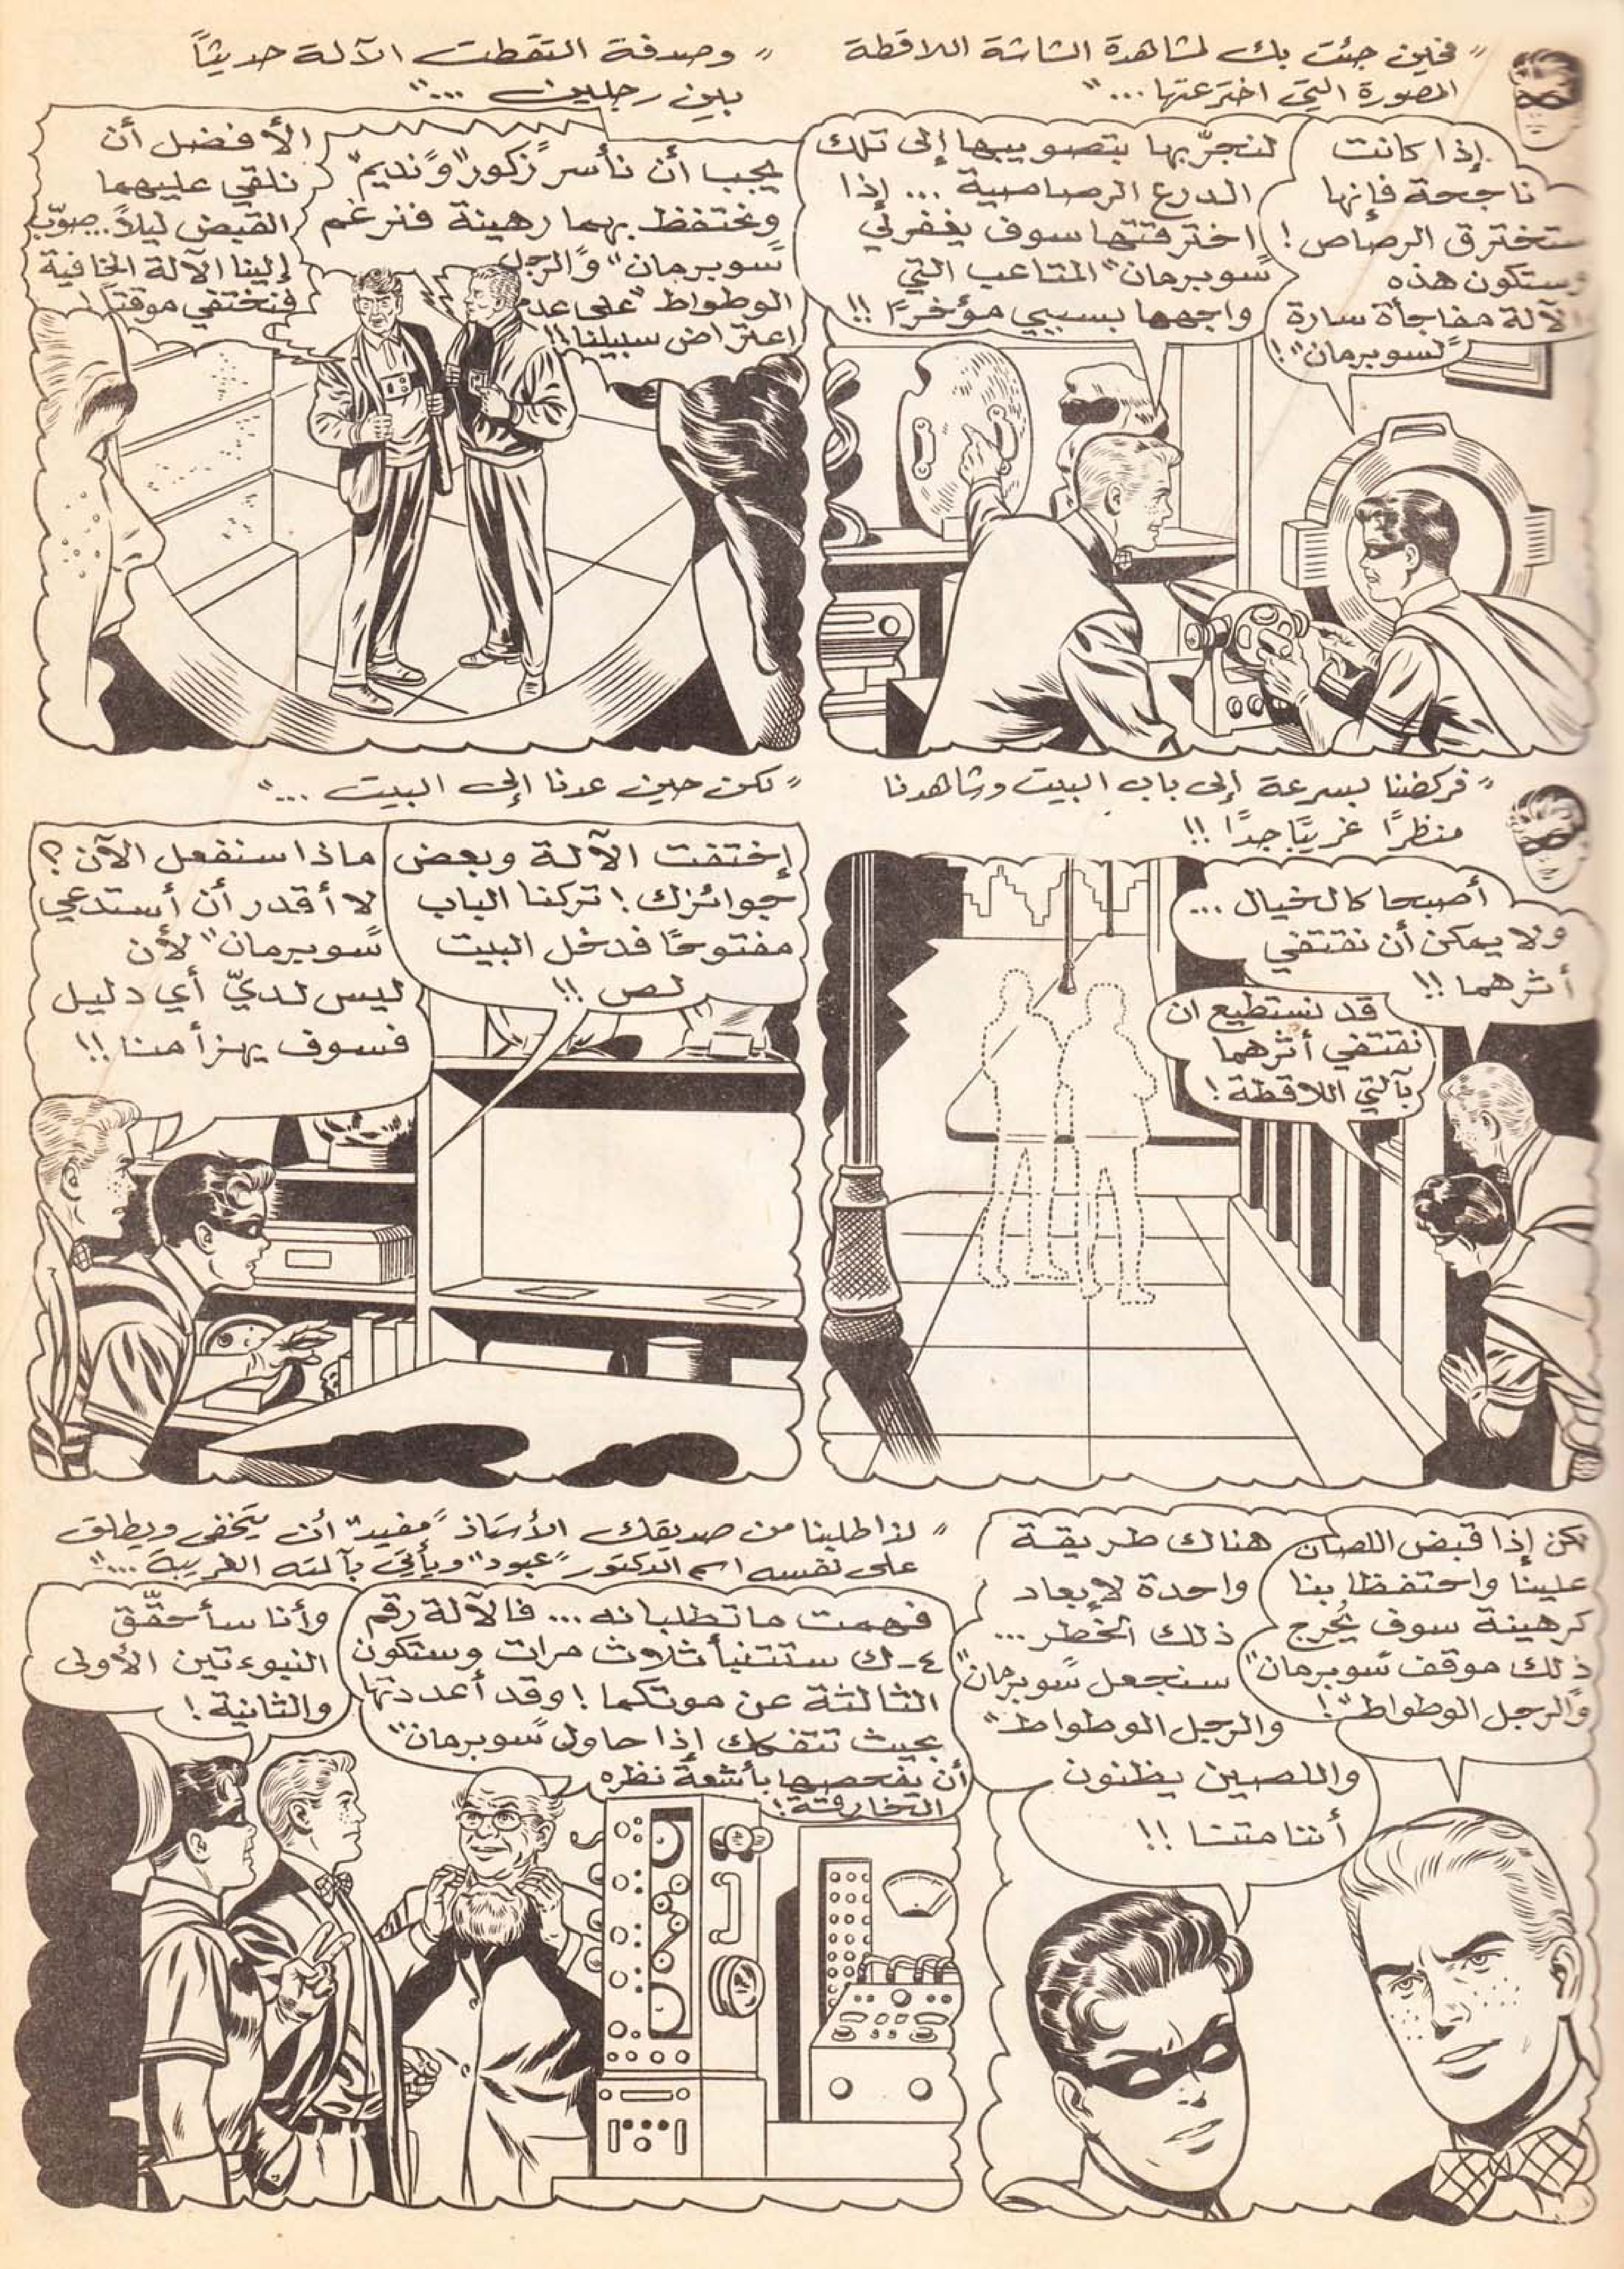 " فحين جئت بك لمشاهدة الشاشة اللاقطة
المصورة التي اخترعتها ... "
إذا كانت
ناجحة فإنها
ستخترق الرصاص !
وستكون هذه
الآلة مفاجأة سارة
"لسوبرمان" !
لنجرّبها بتصويبها إلى تلك
الدرع الرصاصية ... إذا
اخترقتها سوف يغفر لي
"سوبرمان" المتاعب التي
واجهها بسببي مؤخرًا !!
" وصدفة التقطت الآلة حديثًا
بين رجلين ... "
يجب أن نأسر "زكور" و"نديم"
ونحتفظ بهما رهينة فنرغم
"سوبرمان" و"الرجل
الوطواط" على عدم
اعتراض سبيلنا !!
الأفضل أن
نلقي عليهما
القبض ليلاً .. صوّب
إلينا الآلة الخافية
فنختفي موقتًا !
" فركضنا بسرعة إلى باب البيت وشاهدنا
منظرًا غريبًا جدًا !!
أصبحا كالخيال ...
ولا يمكن أن نقتفي
أثرهما !!
قد نستطيع ان
نقتفي أثرهما
بآلتي اللاقطة !
" لكن حين عدنا إلى البيت ... "
إختفت الآلة وبعض
جوائزك ! تركنا الباب
مفتوحًا فدخل البيت
لص !!
ماذا سنفعل الآن ؟
لا أقدر أن أستدعي
"سوبرمان" لأن
ليس لديّ أي دليل
فسوف يهزأ منا !!
لكن إذا قبض اللصان
علينا واحتفظا بنا
كرهينة سوف يُحرج
ذلك موقف "سوبرمان"
و"الرجل الوطواط" !
هناك طريقة
واحدة لإبعاد
ذلك الخطر ...
سنجعل "سوبرمان"
والرجل الوطواط "
واللصين يظنون
أننا متنا !!
" لذا طلبنا من صديقك الأستاذ "مفيد" أن يتخفى ويطلق
على نفسه اسم الدكتور "عبود" ويأتي بآلته الغريبة ... "
فهمت ما تطلبانه ... فالآلة رقم
٤-ك ستتنبأ ثلاث مرات وستكون
الثالثة عن موتكما ! وقد أعددتها
بحيث تتفكك إذا حاول "سوبرمان"
أن يفحصها بأشعة نظره
الخارقة !
وأنا سأحقّق
النبوءتين الأولى
والثانية !